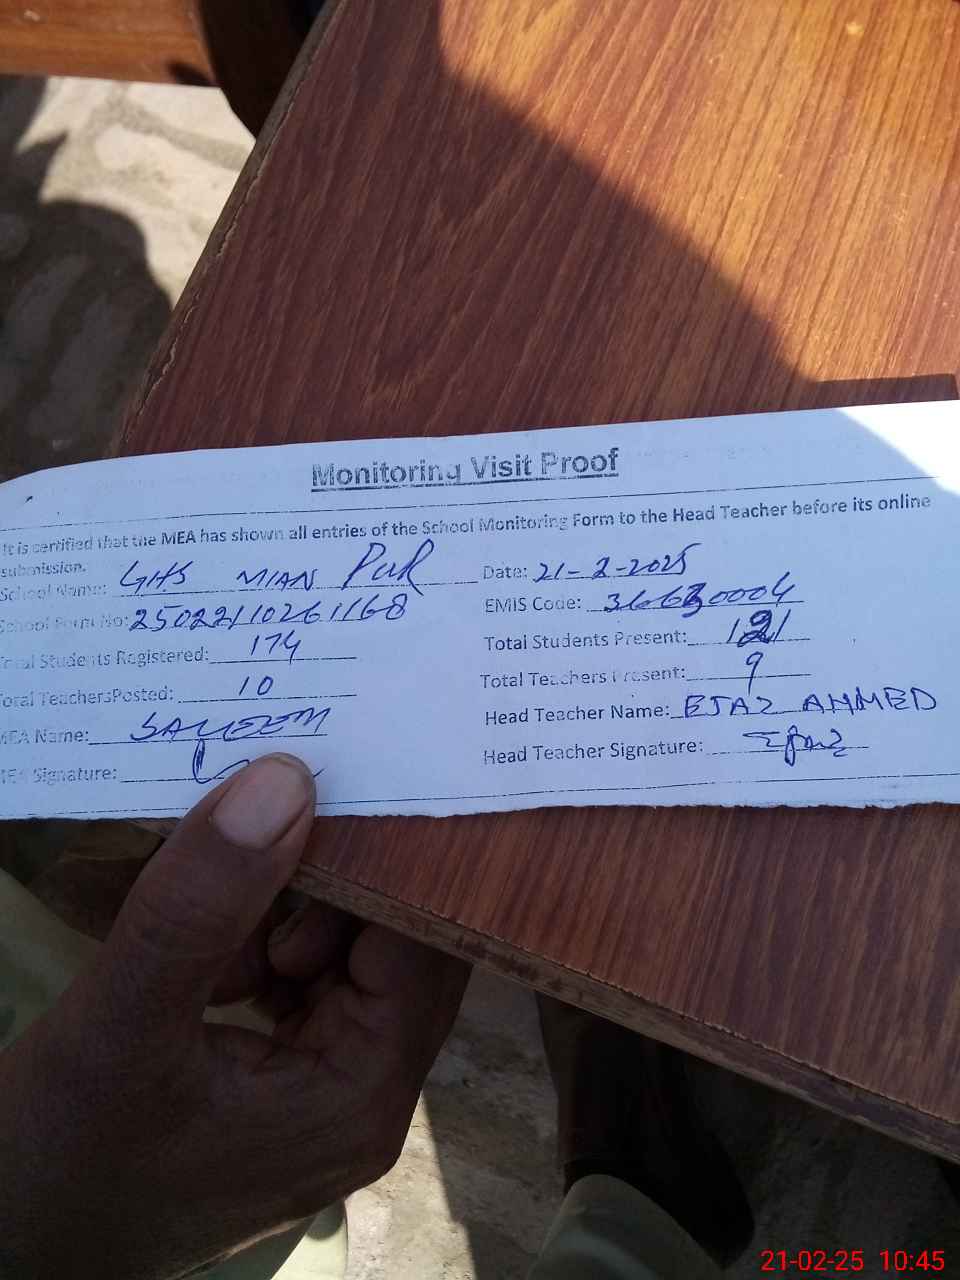 Monitoring Visit Proof
It is certified that the MEA has shown all entries of the School Monitoring Form to the Head Teacher before its online
submission.
School Name: GHS MIAN PUR Date: 21-2-2025
School Form No: 25022110261168 EMIS Code: 36630004
Total Students Registered: 174 Total Students Present: 121
Total TeachersPosted: 10 Total Teachers Present: 9
MEA Name: SALEEM Head Teacher Name: EJAZ AHMED
MEA Signature: Head Teacher Signature: Ejaz
21-02-25 10:45